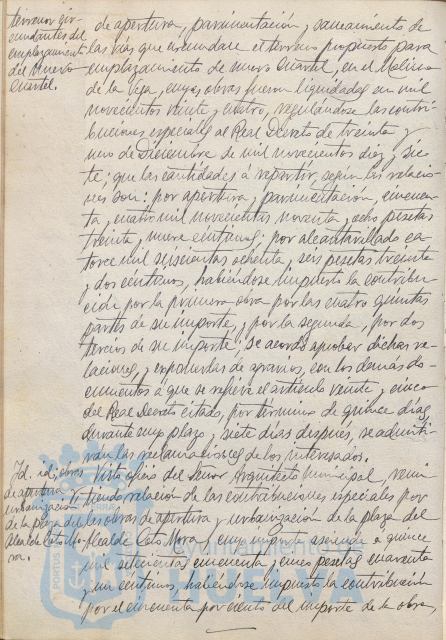 terrenos cir-
cundantes del
emplazamiento
del nuevo
Cuartel.
de apertura, pavimentación y saneamiento de
las vías que circundan el terreno propuesto para
emplazamiento de nuevo Cuartel, en el Molino
de la Vega, cuyas obras fueron liquidadas en mil
novecientos veinte y cuatro, regulándose las contri-
buciones especiales al Real Decreto de treinta y
uno de Diciembre de mil novecientos diez y sie-
te; que las cantidades a repartir, según las relacio-
nes son: por apertura y pavimentación, cincuen-
ta y cuatro mil novecientas noventa y ocho pesetas
treinta y nueve céntimos; por alcantarillado ca-
torce mil seiscientas ochenta y seis pesetas treinta
y dos céntimos, habiéndose impuesto la contribu-
ción por la primera obra por las cuatro quintas
partes de su importe, y por la segunda, por dos
tercios de su importe; se acordó aprobar dichas re-
laciones, y exponerlas de agravios, con los demás do-
cumentos a que se refiere el artículo veinte y cinco
del Real Decreto citado, por término de quince días,
durante cuyo plazo, y siete días después, se admiti-
rán las reclamaciones de los interesados.
Id. id.; obras
de apertura y
urbanización
de la plaza del
Alcalde Coto
Mora.
Visto oficio del Señor Arquitecto Municipal, remi-
tiendo relación de las contribuciones especiales por
las obras de apertura y urbanización de la plaza del
Alcalde Coto Mora, cuyo importe asciende a quince
mil setecientas cincuenta y cinco pesetas cuarenta
y un céntimos, habiéndose impuesto la contribución
por el cincuenta por ciento del importe de la obra,
Ayuntamiento de
HUELVA
PORTUS